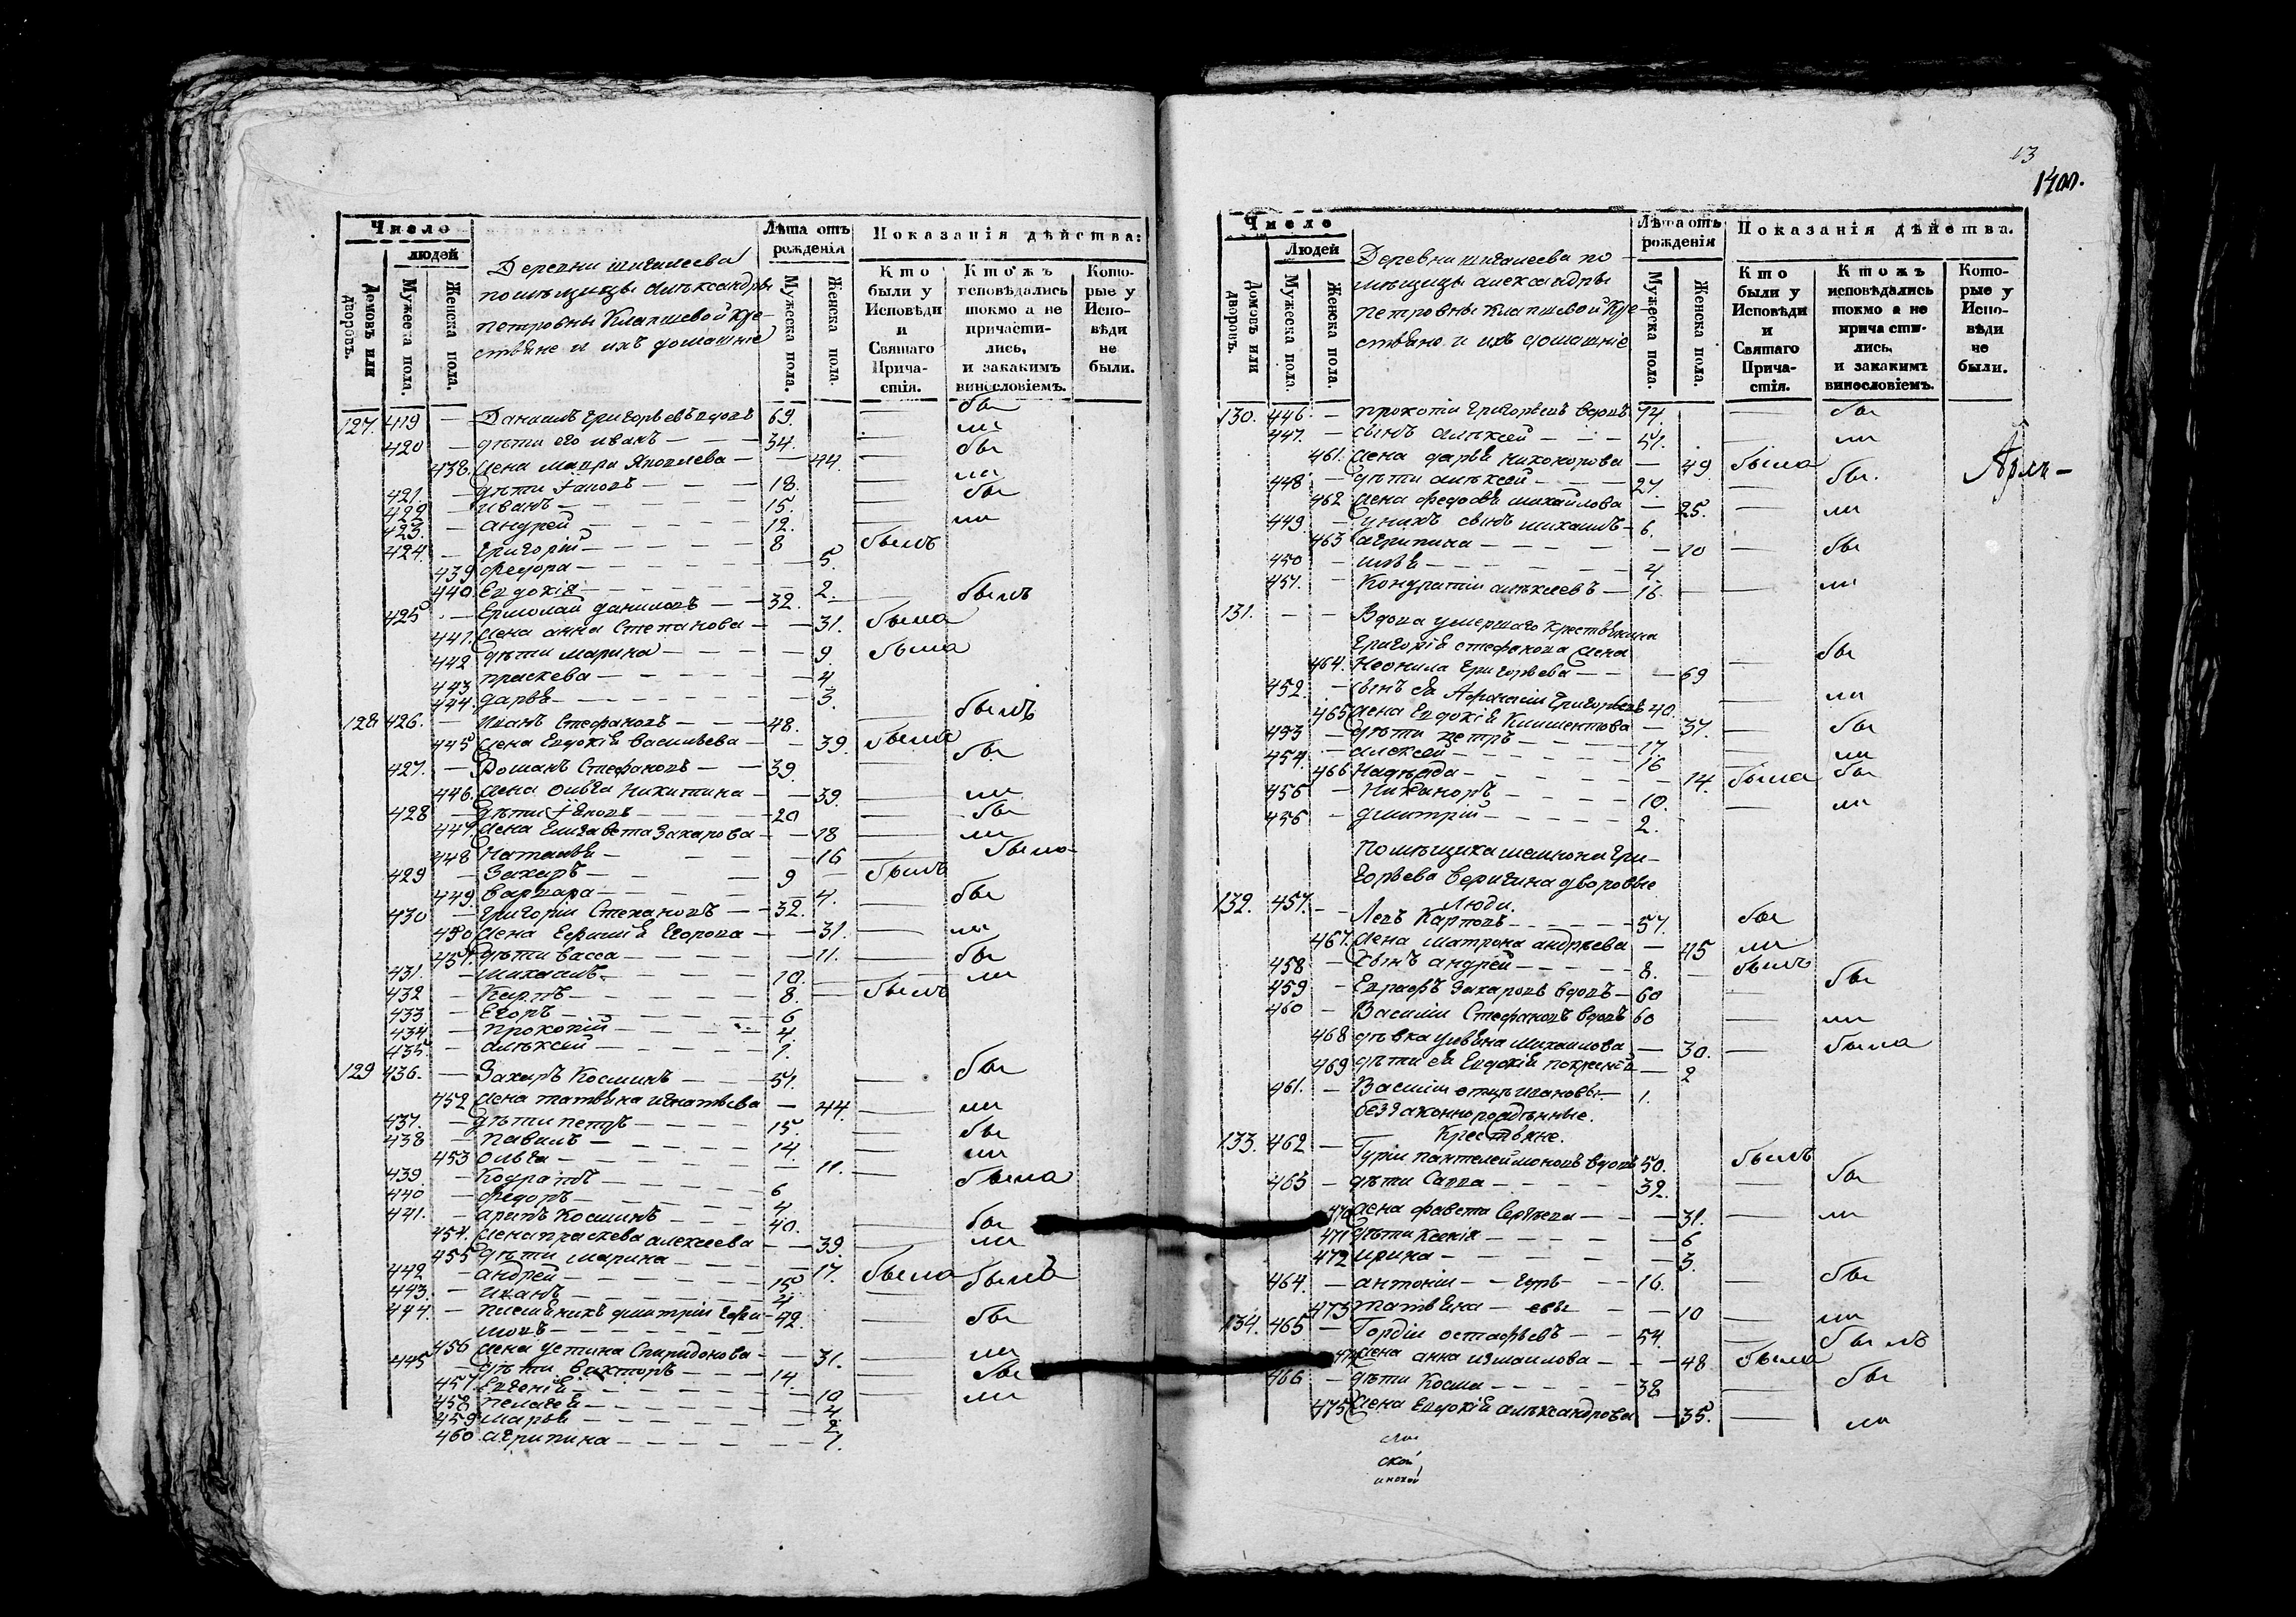 Число
людей
Домовъ или дворовъ.
Мужеска пола.
Женска пола.
Деревни шигалеева
помѣщицы алѣксандры
петровны Клапшевой кре-
стьяне и ихъ домашніе
Лѣта отъ рожденія
Мужеска пола.
Женска пола.
Показанія дѣйства:
Кто были у Исповѣди и Святаго Прича-стія.
Ктожъ исповѣдались токмо а не причасти-лись, и закакимъ винословіемъ.
Кото-рые у Испо-вѣди не были.
127. 419 — Данаилъ григорьевъ вдовъ 69. — бы
420 — дѣти его иванъ — 34. — ли
438. жена мавра Яковлева — 44. — бы
421. — дѣти 18. — ли
422 — иванъ — 15. — бы
423. — андрей — 12. — ли
424. — григорій — 8 былъ
439 федора — 5.
440. Евдокія — 2.
425 — Ермолай даниловъ — 32. — былъ
441. жена анна Степанова — 31. была
442 дѣти марина — 9. была
443 праскева — 4
444. дарья — 3.
128 426. — иванъ Стефановъ — 48. — былъ
445 жена Евдокія васильева — 39. была
427. — Романъ Стефановъ — 39. — бы
446. жена ольга никитина — 39. — ли
428 — дѣти — 20 — бы
447. жена Елизавета Захарова — 18 — ли
448 Наталья — 16 — была
429 — Захаръ — 9 — былъ
449. варвара — 4.
430 — григоріи Стефановъ — 32. — бы
450 жена Ефимія Егорова — 31. — ли
451. дѣти васса — 11. — бы
431. — михаилъ — 10. — ли
432 — Карпъ — 8. — былъ
433 — Егоръ — 6
434 — прокопій — 4
435 — алѣксей — 1.
129 436. — Захаръ Косминъ — 51. — бы
452 жена татьяна игнатьева — 44. — ли
437. — дѣти петръ — 15. — бы
438 — павелъ — 14. — ли
453 ольга — 11. — была
439. — Кодратъ — 6
440 — федоръ — 4
441. — Косминъ — 40. — бы
454. жена праскева алексеева — 39. — ли
455 дѣти марина — 17. была
442 — андрей — 15 — былъ
443. — иванъ — 4
444. — племяникъ дмитріи ефи- 42 — бы
мовъ
456 жена устина Спиридонова — 31. — ли
445 — дѣти викторъ — 14. — бы
457 Евгенія — 10 — ли
458 пелагея — 4
459 марья — 2
460. агрипина — 1.
13
1400.
Число
Людей
Домовъ или дворовъ.
Мужеска пола.
Женска пола.
Деревни шигалеева по-
мѣщицы александры
петровны Клапшевой кре-
стьяне и ихъ домашніе
Лѣта отъ рожденія
Мужеска пола.
Женска пола.
Показанія дѣйства.
Кто были у Исповѣди и Святаго Прича-стія.
Ктожъ исповѣдались токмо а не причасти-лись, и закакимъ винословіемъ.
Кото-рые у Испо-вѣди не были.
130. 446 — прокопіи григорьевъ вдовъ 74. — бы
447. — сынъ алѣксей — 51. — ли
461. жена дарья никонорова — 49 была
448 — дѣти алѣксей — 27. — бы.
462 жена федосья михайлова — 25. — ли
449. — у нихъ сынъ михаилъ — 6.
463 агрипина — 10 — бы
450 — илья — 4
451. — Кондратіи алѣксеевъ — 16. — ли
131. — — Вдова умершаго крестьянина
григорія стефанова жена
464. Неонила григорьева — 69 — бы
452. — сынъ ея Афанасіи григорьевъ 40. — ли
465 жена Евдокія Климентова — 37. — бы
453 — дѣти петръ — 17. — ли
454. — алексей — 16
466 Надѣжда — 14. была бы
455 — никаноръ — 10. — ли
456 — дмитрій — 2.
помѣщика гри-
горьева веригина дворовые
Люди.
132. 457. — Левъ Карповъ — 57. бы
467. жена матрона андреева — 45 ли
458 — сынъ андрей — 8. — былъ
459 — Евграфъ Захаровъ вдовъ — 60 — бы
460 — Василіи Стефановъ вдовъ 60 — ли
468 дѣвка ульяна михаилова — 30. — была
469 дѣти ея Евдокія — 2
461. — Василіи — 1.
беззаконнорожденные.
Крестьяне.
133. 462 — Гуріи пантелеймоновъ вдовъ 50. былъ
463 — дѣти Савва — 32. — бы
470 жена Сергѣева — 31. — ли
471 дѣти Ксенія — 6
472 ирина — 3.
464. — антоніи — гурь- — 16. — бы
473 татьяна — евы — 10 — ли
134. 465 — Гордіи остафьевъ — 54. — былъ
474 жена анна измаилова — 48 была
466 — дѣти Косма — 38 — бы
475 жена Евдокія алѣксандрова — 35. — ли
ской